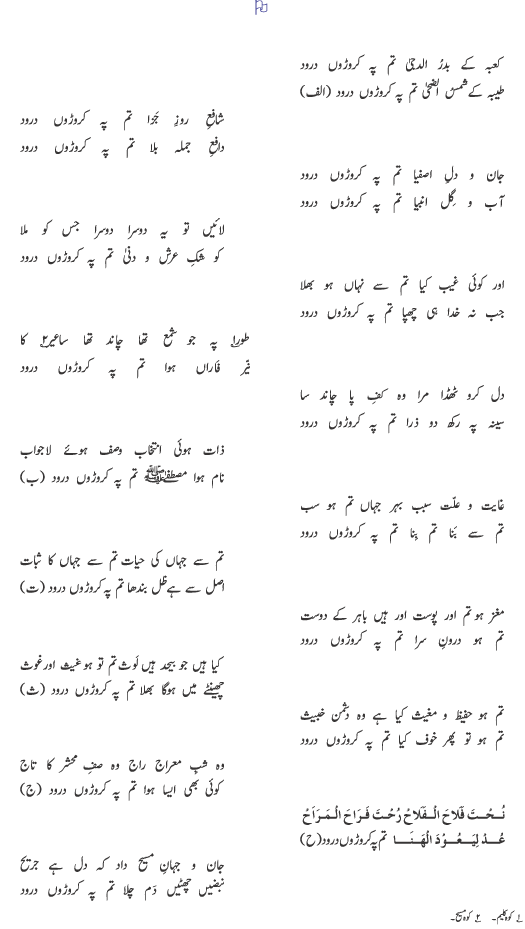 کعبہ کے بدرُ الدجیٰ تم پہ کروڑوں درود
طیبہ کے شمس الضحیٰ تم پہ کروڑوں درود (الف)
شافعِ روزِ جَزا تم پہ کروڑوں درود
دافعِ جملہ بلا تم پہ کروڑوں درود
جان و دلِ اصفیا تم پہ کروڑوں درود
آب و گِلِ انبیا تم پہ کروڑوں درود
لائیں تو یہ دوسرا دوسرا جس کو ملا
کوشکِ عرش و دنیٰ تم پہ کروڑوں درود
اور کوئی غیب کیا تم سے نہاں ہو بھلا
جب نہ خدا ہی چھپا تم پہ کروڑوں درود
طور۱ پہ جو شمع تھا چاند تھا ساعیر۲ کا
نیّرِ فاراں ہوا تم پہ کروڑوں درود
دل کرو ٹھنڈا مرا وہ کفِ پا چاند سا
سینہ پہ رکھ دو ذرا تم پہ کروڑوں درود
ذات ہوئی انتخاب وصف ہوئے لاجواب
نام ہوا مصطفیٰ ﷺ تم پہ کروڑوں درود (ب)
غایت و علّت سبب بہر جہاں تم ہو سب
تم سے بَنا تم بِنا تم پہ کروڑوں درود
تم سے جہاں کی حیات تم سے جہاں کا ثبات
اصل سے ہے ظل بندھا تم پہ کروڑوں درود (ت)
مغز ہو تم اور پوست اور ہیں باہر کے دوست
تم ہو درونِ سرا تم پہ کروڑوں درود
کیا ہیں جو بیحد ہیں لَوث تم تو ہو غیث اور غوث
چھینٹے میں ہوگا بھلا تم پہ کروڑوں درود (ث)
تم ہو حفیظ و مغیث کیا ہے وہ دشمن خبیث
تم ہو تو پھر خوف کیا تم پہ کروڑوں درود
وہ شبِ معراج راج وہ صفِ محشر کا تاج
کوئی بھی ایسا ہوا تم پہ کروڑوں درود (ج)
نُحْتَ فَلَاحَ الْفَلَاحُ رُحْتَ فَرَاحَ الْمَرَاحُ
عُدْ لِیَعُوْدَ الْھَنَا تم پہ کروڑوں درود (ح)
جان و جہانِ مسیح داد کہ دل ہے جریح
نبضیں چھٹیں دَم چلا تم پہ کروڑوں درود
۱ کوہِ کلیم۔ ۲ کوہِ مسیح۔